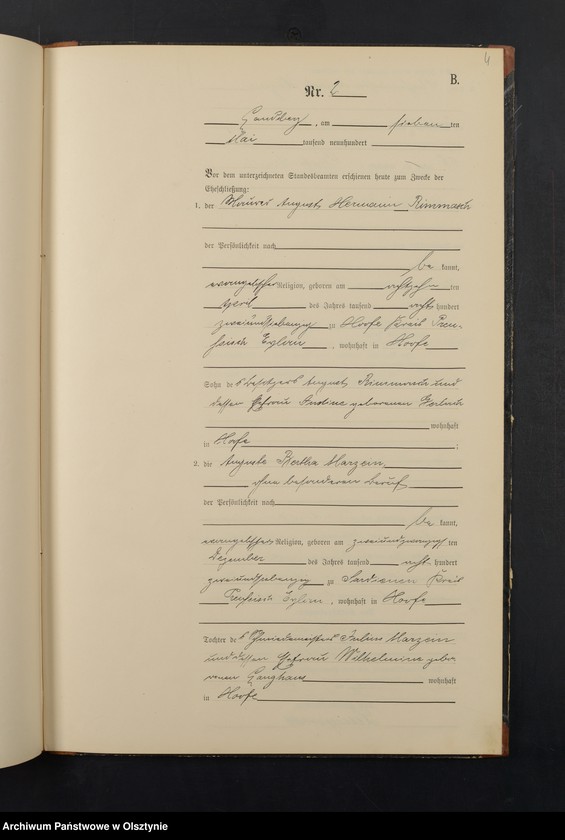 4
B.
Nr. 2
am sieben ten
Mai tausend neunhundert
Vor dem unterzeichneten Standesbeamten erschienen heute zum Zwecke der
Eheschließung:
1. der Maurer August Hermann Rimmasch
der Persönlichkeit nach
be kannt,
evangelischer Religion, geboren am achtzehn ten
April des Jahres tausend acht hundert
zweiundsiebenzig zu Hoofe Kreis Preu-
ssisch Eylau, wohnhaft in Hoofe
Sohn des Besitzers August Rimmasch und
dessen Ehefrau Justine geborenen Gerlach
wohnhaft
in Hoofe;
2. die Auguste Bertha Marzein,
ohne besonderen Beruf
der Persönlichkeit nach
be kannt,
evangelischer Religion, geboren am zweiundzwanzigs ten
Dezember des Jahres tausend acht hundert
zweiundsiebenzig zu Sardienen Kreis
Preussisch Eylau, wohnhaft in Hoofe
Tochter des Schmiedemeisters Julius Marzein
und dessen Ehefrau Wilhelmine gebo-
renen wohnhaft
in Hoofe
Archiwum Państwowe w Olsztynie